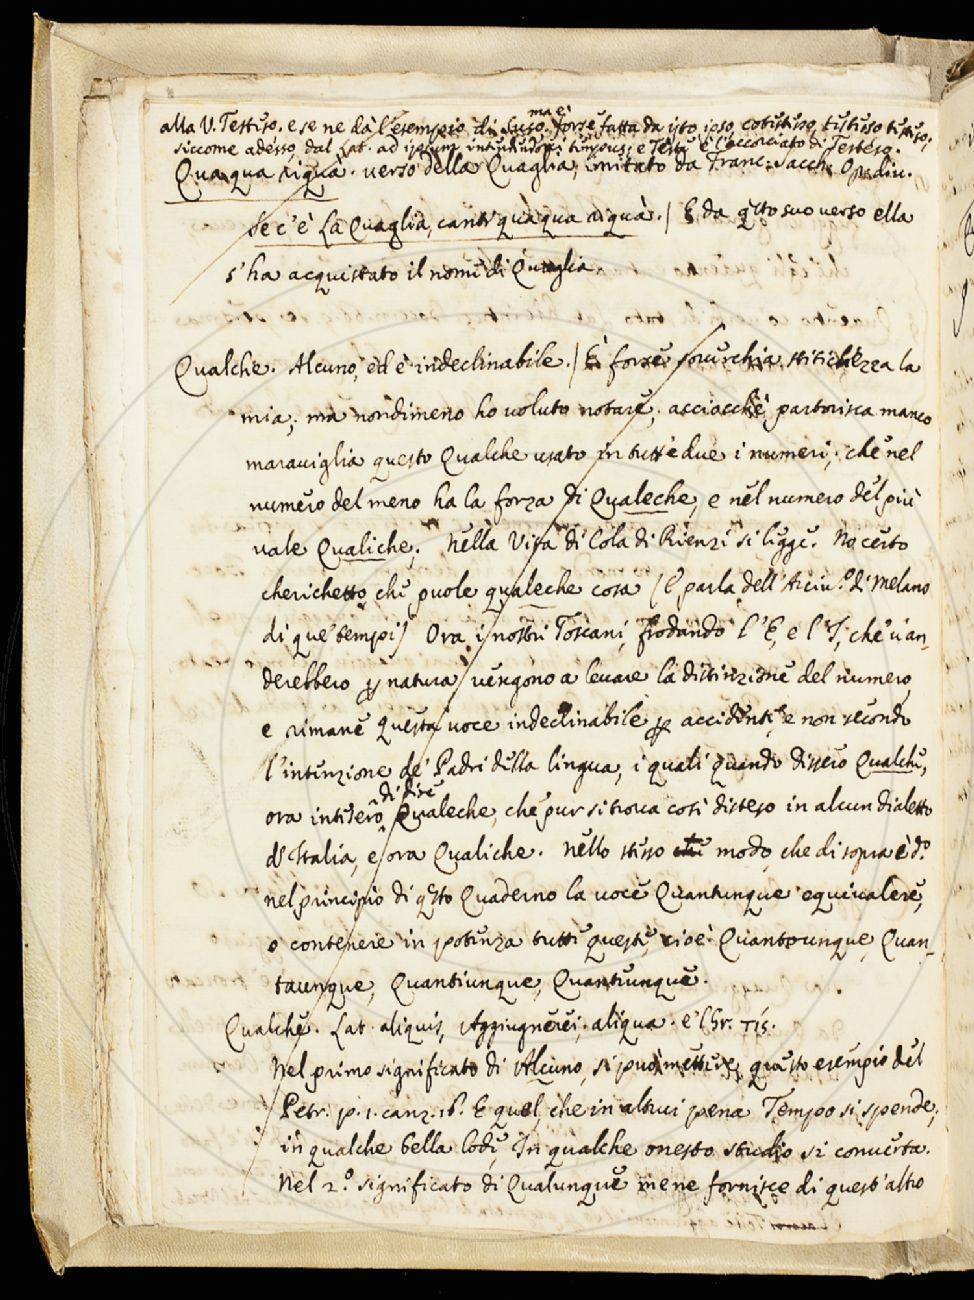 alla V. Testeso. e se ne dà l'esempio di Suso. ma è forse fatta da isto ipso, cotestesso, testesso testeso,
siccome adesso, dal Lat. ad ipsum, intendendosi tempus; e Testè è l'accorciato di Testeso.
Qua qua riquà. verso della Quaglia, imitato da Franc. Sacch. Op. div.
Se c'è la Quaglia, canti quà qua riquà. / E da q̃sto suo verso ella
s'ha acquistato il nome di Quaglia.
Qualche. Alcuno, ed è indeclinabile. / È forse soverchia stitichezza la
mia; ma nondimeno ho voluto notare, acciocchè partorisca manco
maraviglia questo Qualche usato in tutt'e due i numeri; che nel
numero del meno ha la forza di Qualeche, e nel numero del più
vale Qualiche. Nella Vita di Cola di Rienzi si legge. No certo
cherichetto, che puole qualeche cosa (e parla dell'Arciv.º di Melano
di que' tempi) Ora i nostri Toscani, frodando l'E, e l'I, che v'an-
derebbero p natura, vengono a levare la distinzione del numero,
e rimane questa voce indeclinabile p accidente, e non secondo
l'intenzione de' Padri della lingua, i quali quando dissero Qualche,
ora intesero di dire Qualeche, che pur si trova così disteso in alcun dialetto
d'Italia, e ora Qualiche. Nello stesso modo, che di sopra è d.º
nel principio di q̃sto Quaderno la voce Quantunque equivalere,
o contenere in potenza tutti questi, cioè Quantounque, Quan-
taunque, Quantiunque, Quanteunque.
Qualche. Lat. aliquis, Aggiugnerei, aliqua. e 'l Gr. τίς.
Nel primo significato di Alcuno, si può mettere questo esempio del
Petr. p. 1. canz. 16. E quel, che in altrui pena Tempo si spende,
in qualche bella lode, In qualche onesto studio si converta.
Nel 2.º significato di Qualunque mene fornisce di quest'altro